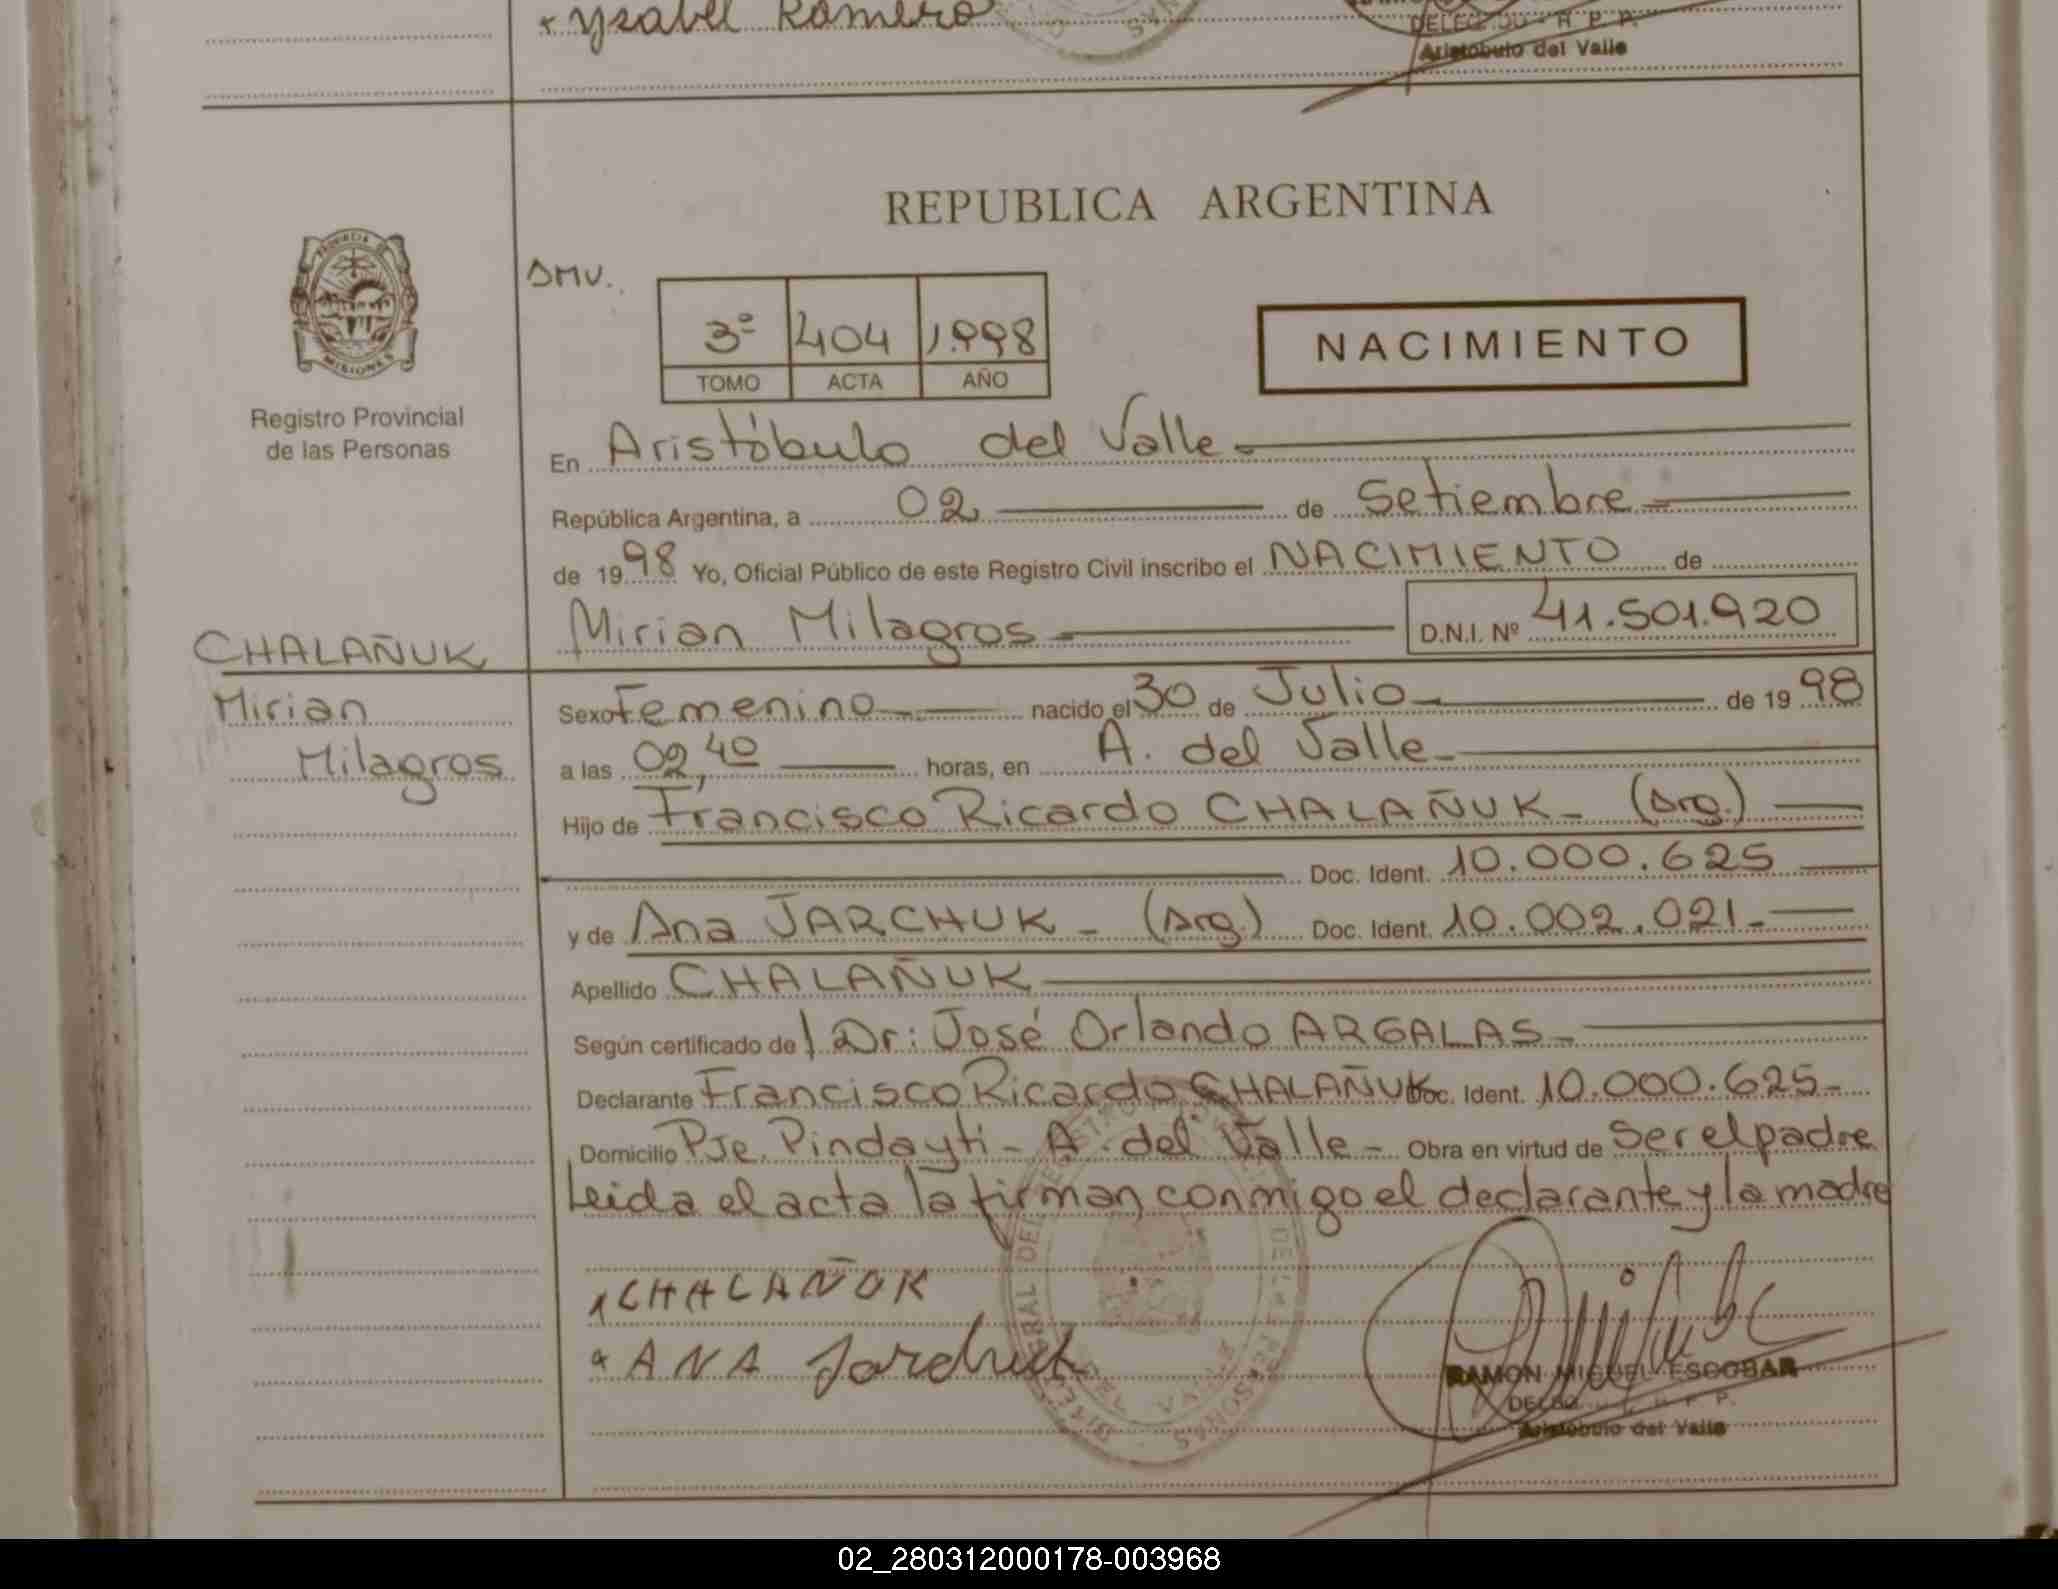 x Ysabel Romero
DELEG DO - R P P.
Aristóbulo del Valle
REPUBLICA ARGENTINA
PROVINCIA DE
MISIONES
Registro Provincial
de las Personas
SMV.
3º 404 1.998
TOMO ACTA AÑO
NACIMIENTO
En Aristóbulo del Valle
República Argentina, a 02 de Setiembre
de 1998 Yo, Oficial Público de este Registro Civil inscribo el NACIMIENTO de
Mirian Milagros D.N.I. Nº 41.501.920
CHALAÑUK
Mirian
Milagros
Sexo Femenino nacido el 30 de Julio de 1998
a las 02,40 horas, en A. del Valle
Hijo de Francisco Ricardo CHALAÑUK - (Arg.)
Doc. Ident. 10.000.625
y de Ana JARCHUK - (Arg.) Doc. Ident. 10.002.021
Apellido CHALAÑUK
Según certificado del Dr: José Orlando ARGALAS
Declarante Francisco Ricardo CHALAÑUK Doc. Ident. 10.000.625
Domicilio Pje. Pindayti - A. del Valle - Obra en virtud de ser el padre
Leida el acta la firman conmigo el declarante y la madre
x CHALAÑUK
x ANA Jarchuk
RAMON MIGUEL ESCOBAR
R P P.
Aristóbulo del Valle
02_280312000178-003968